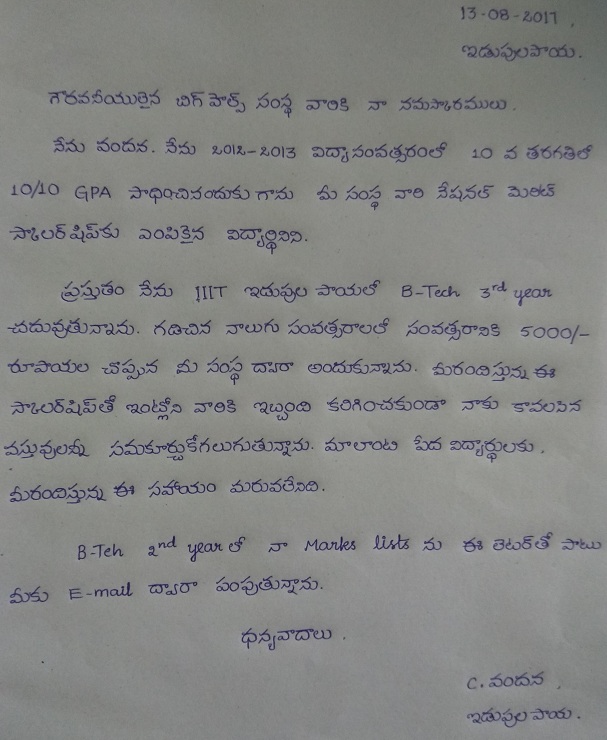 13-08-2017,
ఇడుపులపాయ.
గౌరవనీయులైన బిగ్ హెల్ప్ సంస్థ వారికి నా నమస్కారములు.
నేను వందన. నేను 2012-2013 విద్యాసంవత్సరంలో 10 వ తరగతిలో
10/10 GPA సాధించినందుకు గాను మీ సంస్థ వారి నేషనల్ మెరిట్
స్కాలర్ షిప్‌కు ఎంపికైన విద్యార్థినిని.
ప్రస్తుతం నేను IIIT ఇడుపుల పాయలో B-Tech 3rd year
చదువుతున్నాను. గడిచిన నాలుగు సంవత్సరాలలో సంవత్సరానికి 5000/-
రూపాయల చొప్పున మీ సంస్థ ద్వారా అందుకున్నాను. మీరందిస్తున్న ఈ
స్కాలర్‌షిప్‌తో ఇంట్లోని వారికి ఇబ్బంది కలిగించకుండా నాకు కావలసిన
వస్తువులన్నీ సమకూర్చుకోగలుగుతున్నాను. మాలాంటి పేద విద్యార్థులకు,
మీరందిస్తున్న ఈ సహాయం మరువలేనిది.
B-Teh 2nd year లో నా Marks lists ను ఈ లెటర్‌తో పాటు
మీకు E-mail ద్వారా పంపుతున్నాను.
ధన్యవాదాలు.
C. వందన,
ఇడుపుల పాయ.